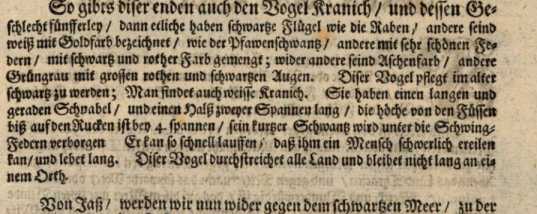 So gibts diser enden auch den Vogel Kranich / und dessen Ge-
schlecht fünfferley / dann etliche haben schwartze Flügel wie die Raben / andere seind
weiß mit Goldfarb bezeichnet / wie der Pfawenschwantz / andere mit sehr schönen Fe-
dern / mit schwartz und rother Farb gemengt; wider andere seind Aschenfarb / andere
Grüngrau mit grossen rothen und schwartzen Augen. Diser Vogel pflegt im alter
schwartz zu werden; Man findet auch weisse Kranich. Sie haben einen langen und
geraden Schnabel / und einen Halß zweyer Spannen lang / die höche von den Füssen
biß auf den Rucken ist bey 4. spannen / sein kurtzer Schwantz wird unter die Schwing-
Federn verborgen Er kan so schnell lauffen / daß ihm ein Mensch schwerlich ereilen
kan / und lebet lang. Diser Vogel durchstreichet alle Land und bleibet nicht lang an ei-
nem Orth.
Von Jaß / werden wir nun wider gegen dem schwartzen Meer / zu der